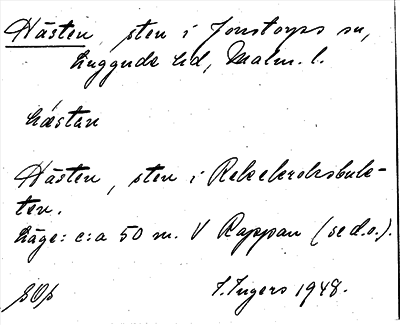 Hästen, sten i Jonstorps sn,
Luggude hd, Malm. l.
hǽstan
Hästen, sten i Rekekroksbuk-
ten.
Läge: c:a 50 m. V Rappan (se d.o.).
I. Ingers 1948.